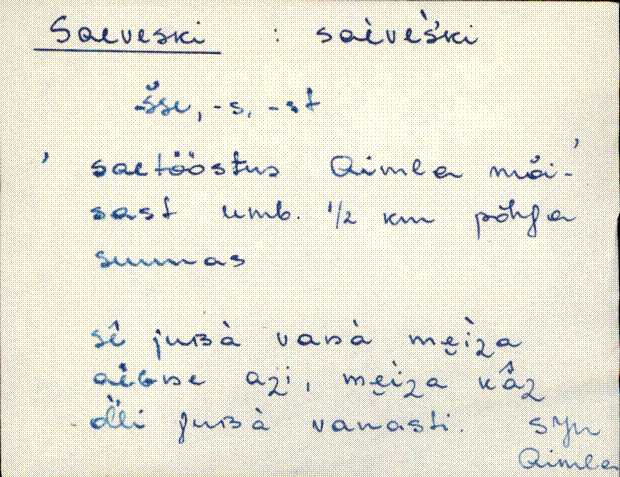 Saeveski : saèvèški
-šse, -s, -st
' saetööstus Aimla mõi-'
sast umb. ½ km põhja
suunas
sê juʙà vanà mẹiza
aẹ̀gse azi, mẹiza kâz
õ̭li juʙà vanasti. Syn
Aimla